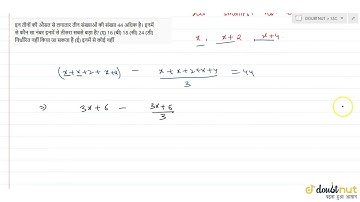 इन तीनों की औसत से लगातार तीन संख्याओं की संख्या 44 अधिक है। इनमें
से कौन सा नंबर इनमें से तीसरा सबसे बड़ा है? (ए) 16 (बी) 18 (सी) 24 (डी)
निर्धारित नहीं किया जा सकता है (ई) इनमें से कोई नहीं
DOUBTNUT > SSC
x , x+2 , x+4
(x+x+2+x+4) − x+x+2+x+4 = 44
3
⇒ 3x+6 − 3x+6
3
doubtnut
पढ़ना हुआ आसान